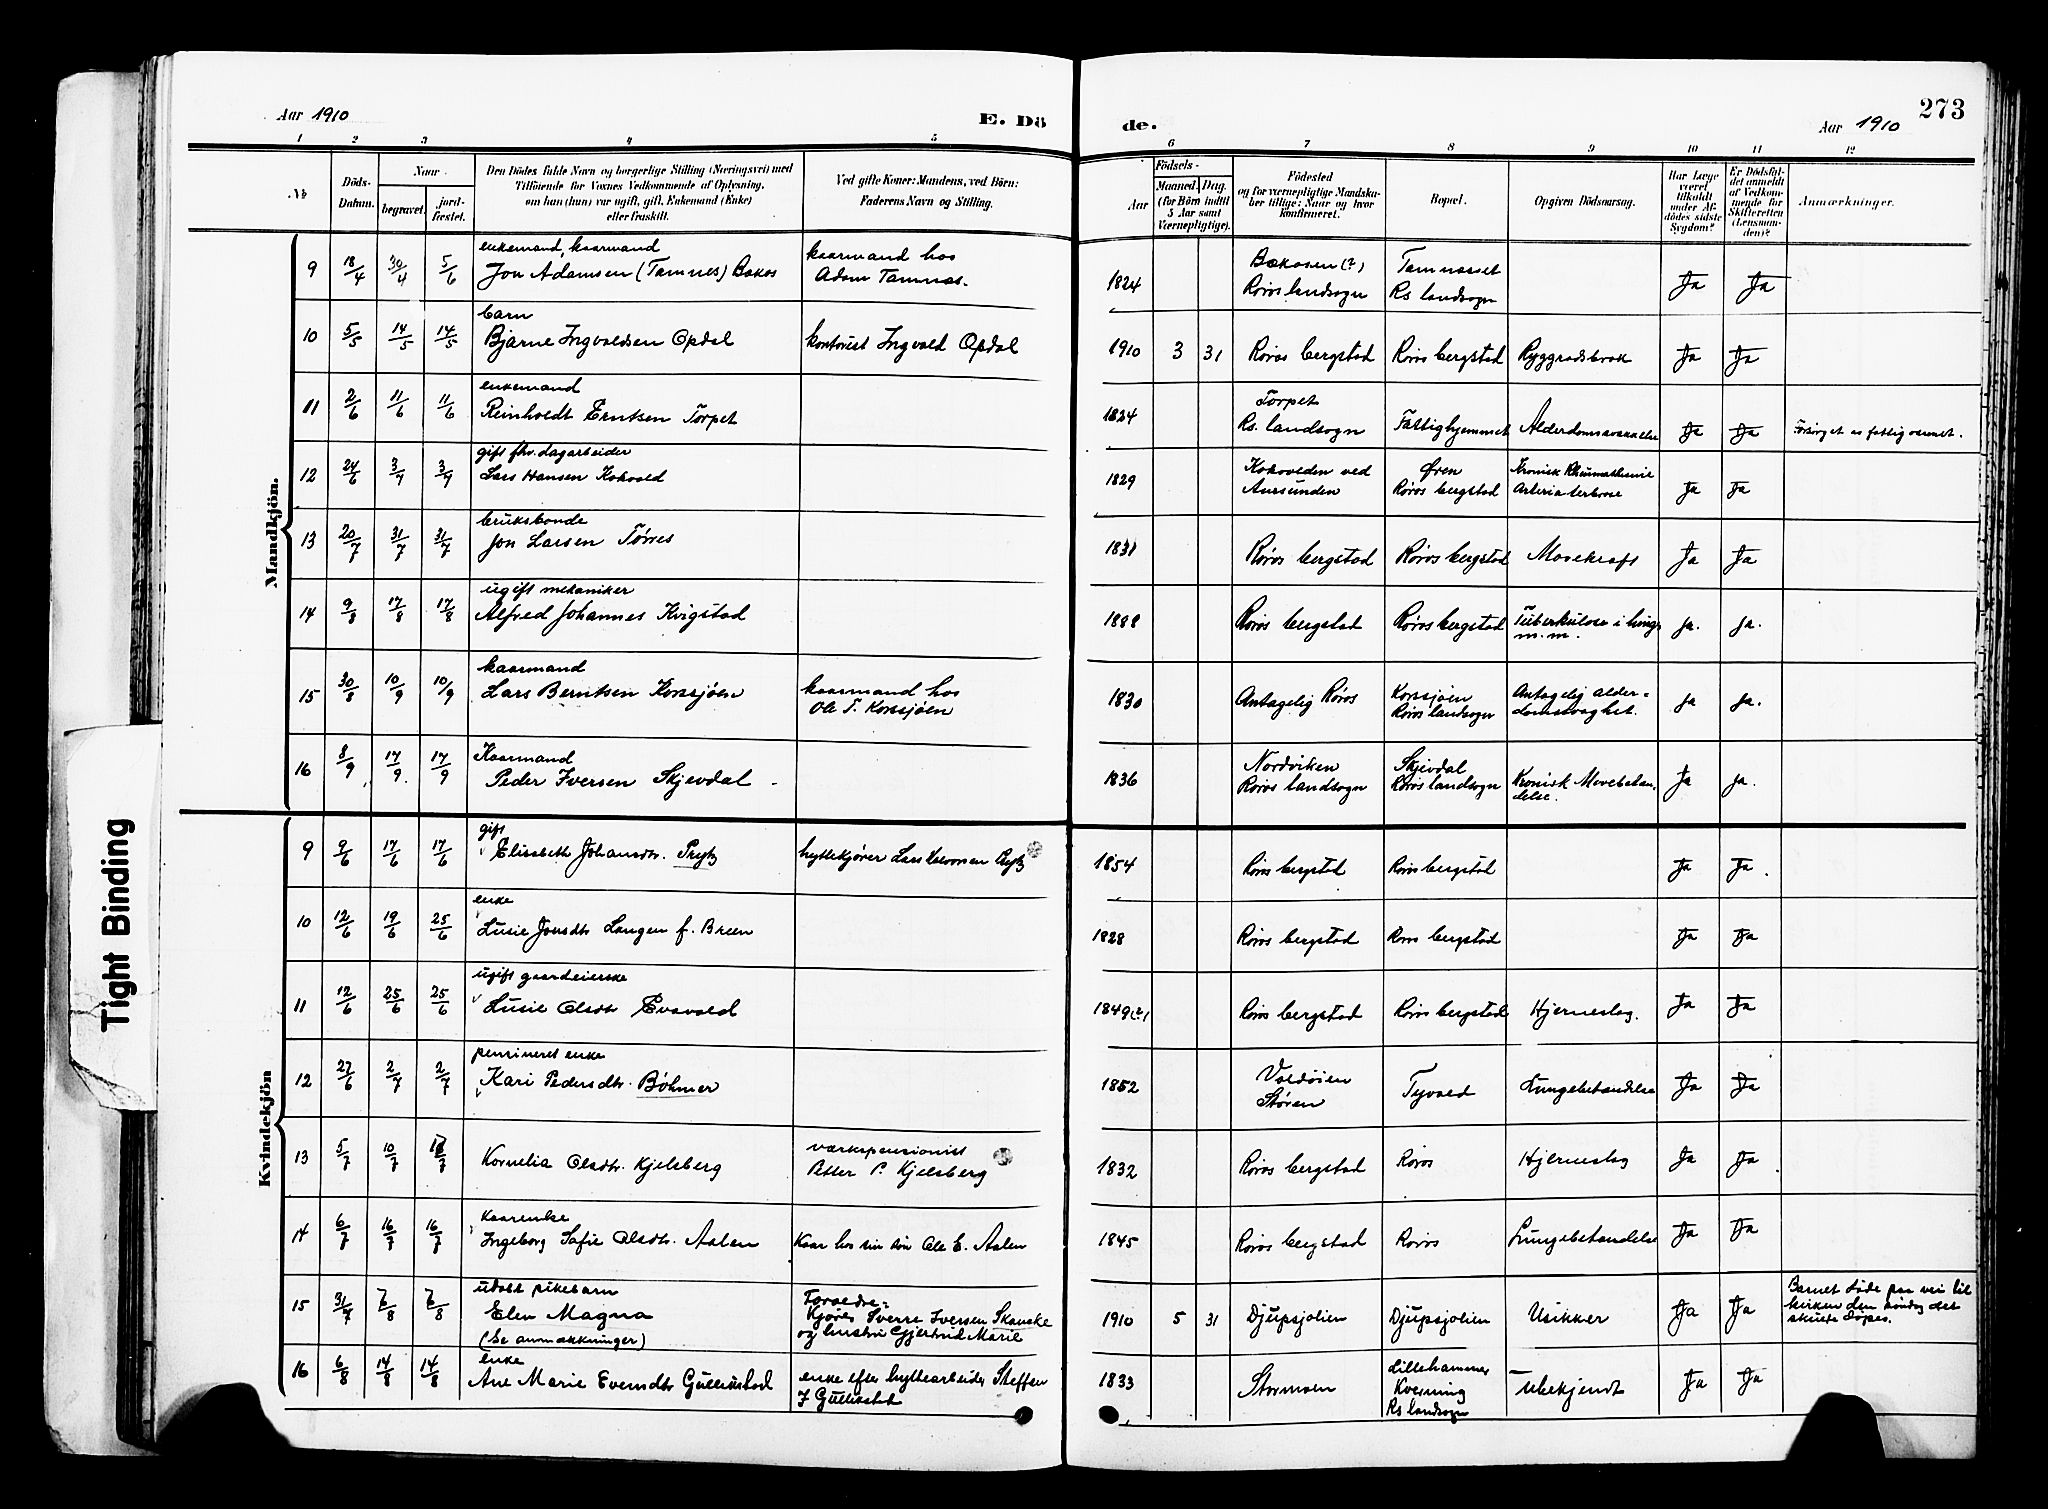 Aar 1910
E. Dö
de.
Aar 1910
273
1 2 3 4 5 6 7 8 9 10 11 12
No
Döds-
Datum.
Naar
begravet.
jord-
fæstet.
Den Dödes fulde Navn og borgerlige Stilling (Næringsvei) med
Tilföiende for Voxnes Vedkommende af Oplysning,
om han (hun) var ugift, gift, Enkemand (Enke)
eller fraskilt.
Ved gifte Koner: Mandens, ved Börn:
Faderens Navn og Stilling.
Födsels-
Aar
Maaned. Dag.
(for Börn indtil
5 Aar samt
Værnepligtige).
Födested
og for værnepligtige Mandska-
ber tillige: Naar og hvor
konfirmeret.
Bopæl.
Opgiven Dödsaarsag.
Har Læge
været
tilkaldt
under Af-
dödes sidste
Sygdom?
Er Dödsfal-
det anmeldt
af Vedkom-
mende for
Skifteretten
(Lensman-
den)?
Anmærkninger.
Mandkjön.
9 18/4 30/4 5/6 enkemand, kaarmand
Jon Adamsen (Tamnes) Bakos
kaarmand hos
Adam Tamnes.
1824 Bakosen (?)
Røros landsogn
Tamnesset
Rs landsogn
Ja Ja
10 5/5 14/5 14/5 barn
Bjarne Ingvaldsen Opdal
kontorist Ingvald Opdal
1910 3 31 Røros bergstad Røros bergstad Ryggradsbrok Ja Ja
11 2/6 11/6 11/6 enkemand
Reinholdt Erntsen Torpet
1824 Torpet
Rs. landsogn
Fattighjemmet Alderdomssvakkelse Ja Ja Forsørget av fattigvesenet.
12 24/6 3/7 3/7 gift fhv. dagarbeider
Lars Hansen Kokvold
1829 Kokvolden ved
Aursunden
Øren
Røros bergstad
Kronisk Rheumathisme
Ja Ja
13 20/7 31/7 31/7 bruksbonde
Jon Larsen Tørres
1831 Røros bergstad Røros bergstad Mavekræft Ja Ja
14 9/8 17/8 17/8 ugift mekaniker
Alfred Johannes Kvigstad
1888 Røros bergstad Røros bergstad Tuberkulose i lunge
m.m.
ja. ja.
15 30/8 10/9 10/9 kaarmand
Lars Berntsen Korssjøen
kaarmand hos
Ole T. Korssjøen
1830 Antagelig Røros Korssjøen
Røros landsogn
Antagelig alder-
domssvaghet.
ja ja.
16 8/9 17/9 17/9 Kaarmand
Peder Iversen Skjevdal
1836 Nordviken
Røros landsogn
Skjevdal
Røros landsogn
Kronisk Mavebetæn-
delse.
Ja ja.
Kvindekjön
9 9/6 17/6 17/6 gift
Elisabeth Johansdtr. Prytz
hyttekjører Lars Prytz
1854 Røros bergstad Røros bergstad Ja Ja
10 12/6 19/6 25/6 enke
Lusie Jonsdtr Langen f. Breen
1828 Røros bergstad Røros bergstad Ja Ja
11 12/6 25/6 25/6 ugift gaardeierske
Lusie Olsdtr Evavold
1849(?) Røros bergstad Røros bergstad Hjerneslag. Ja Ja
12 27/6 2/7 2/7 pensineret enke
Kari Pedersdtr. Böhmer
1852 Voldøien
Støren
Tyvold Lungebetændelse Ja Ja
13 5/7 10/7 Kornelia Olsdtr. Kjelsberg
værkspensionist
Petter P. Kjelsberg
1832 Røros bergstad Røros Hjerneslag Ja Ja
14 6/7 16/7 16/7 Kaarenke
Ingeborg Sofie Olsdtr. Aalen
Kaar hos sin søn Ole E. Aalen
1845 Røros bergstad Røros Lungebetændelse Ja Ja
15 31/7 7/8 7/8 udøbt pikebarn
Elen Magna
(Se anmærkninger)
Forældre:
Kjører Sverre Iversen Skancke
og hustru Gjertrud Marie
1910 5 31 Djupsjølien Djupsjølien Usikker Ja Ja
Barnet døde paa vei til
kirken den søndag det
skulde døpes.
16 6/8 14/8 14/8 enke
Ane Marie Evendtr Gullikstad
enke efter hyttearbeider Steffen
J Gullikstad
1833 Stormoen Lillehammer
Kverning
Rs landsogn
Ubekjendt Ja Ja
Tight Binding